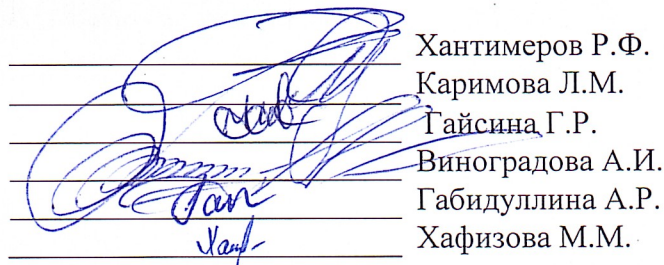 Хантимеров Р.Ф.
Каримова Л.М.
Гайсина Г.Р.
Виноградова А.И.
Габидуллина А.Р.
Хафизова М.М.